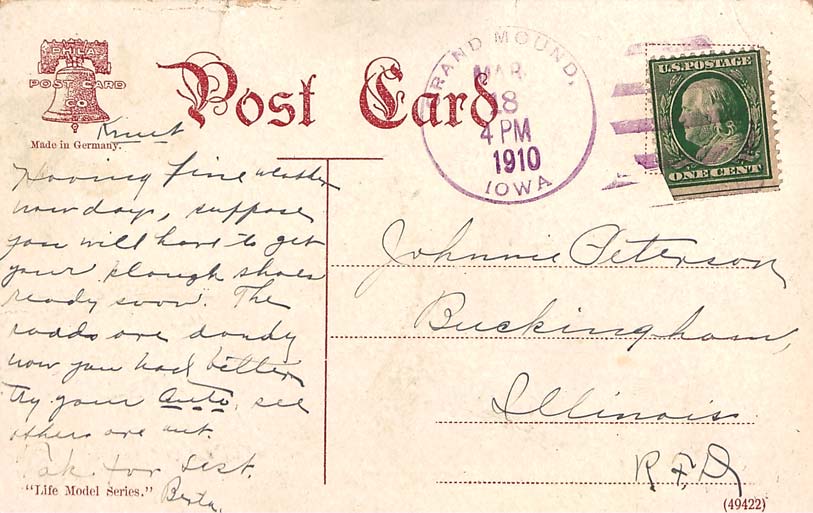 PHILA
POST CARD
CO
Made in Germany.
Post Card
GRAND MOUND,
MAR
18
4 PM
1910
IOWA
U.S. POSTAGE
ONE CENT
Knut
Having fine weather
now days, suppose
you will have to get
your plough shoes
ready soon. The
roads are dandy
now you had better
try your Auto, see
others are out.
Tak for sist.
Berta.
"Life Model Series."
Johnnie Peterson
Buckingham,
Illinois
R.F.D
(49422)